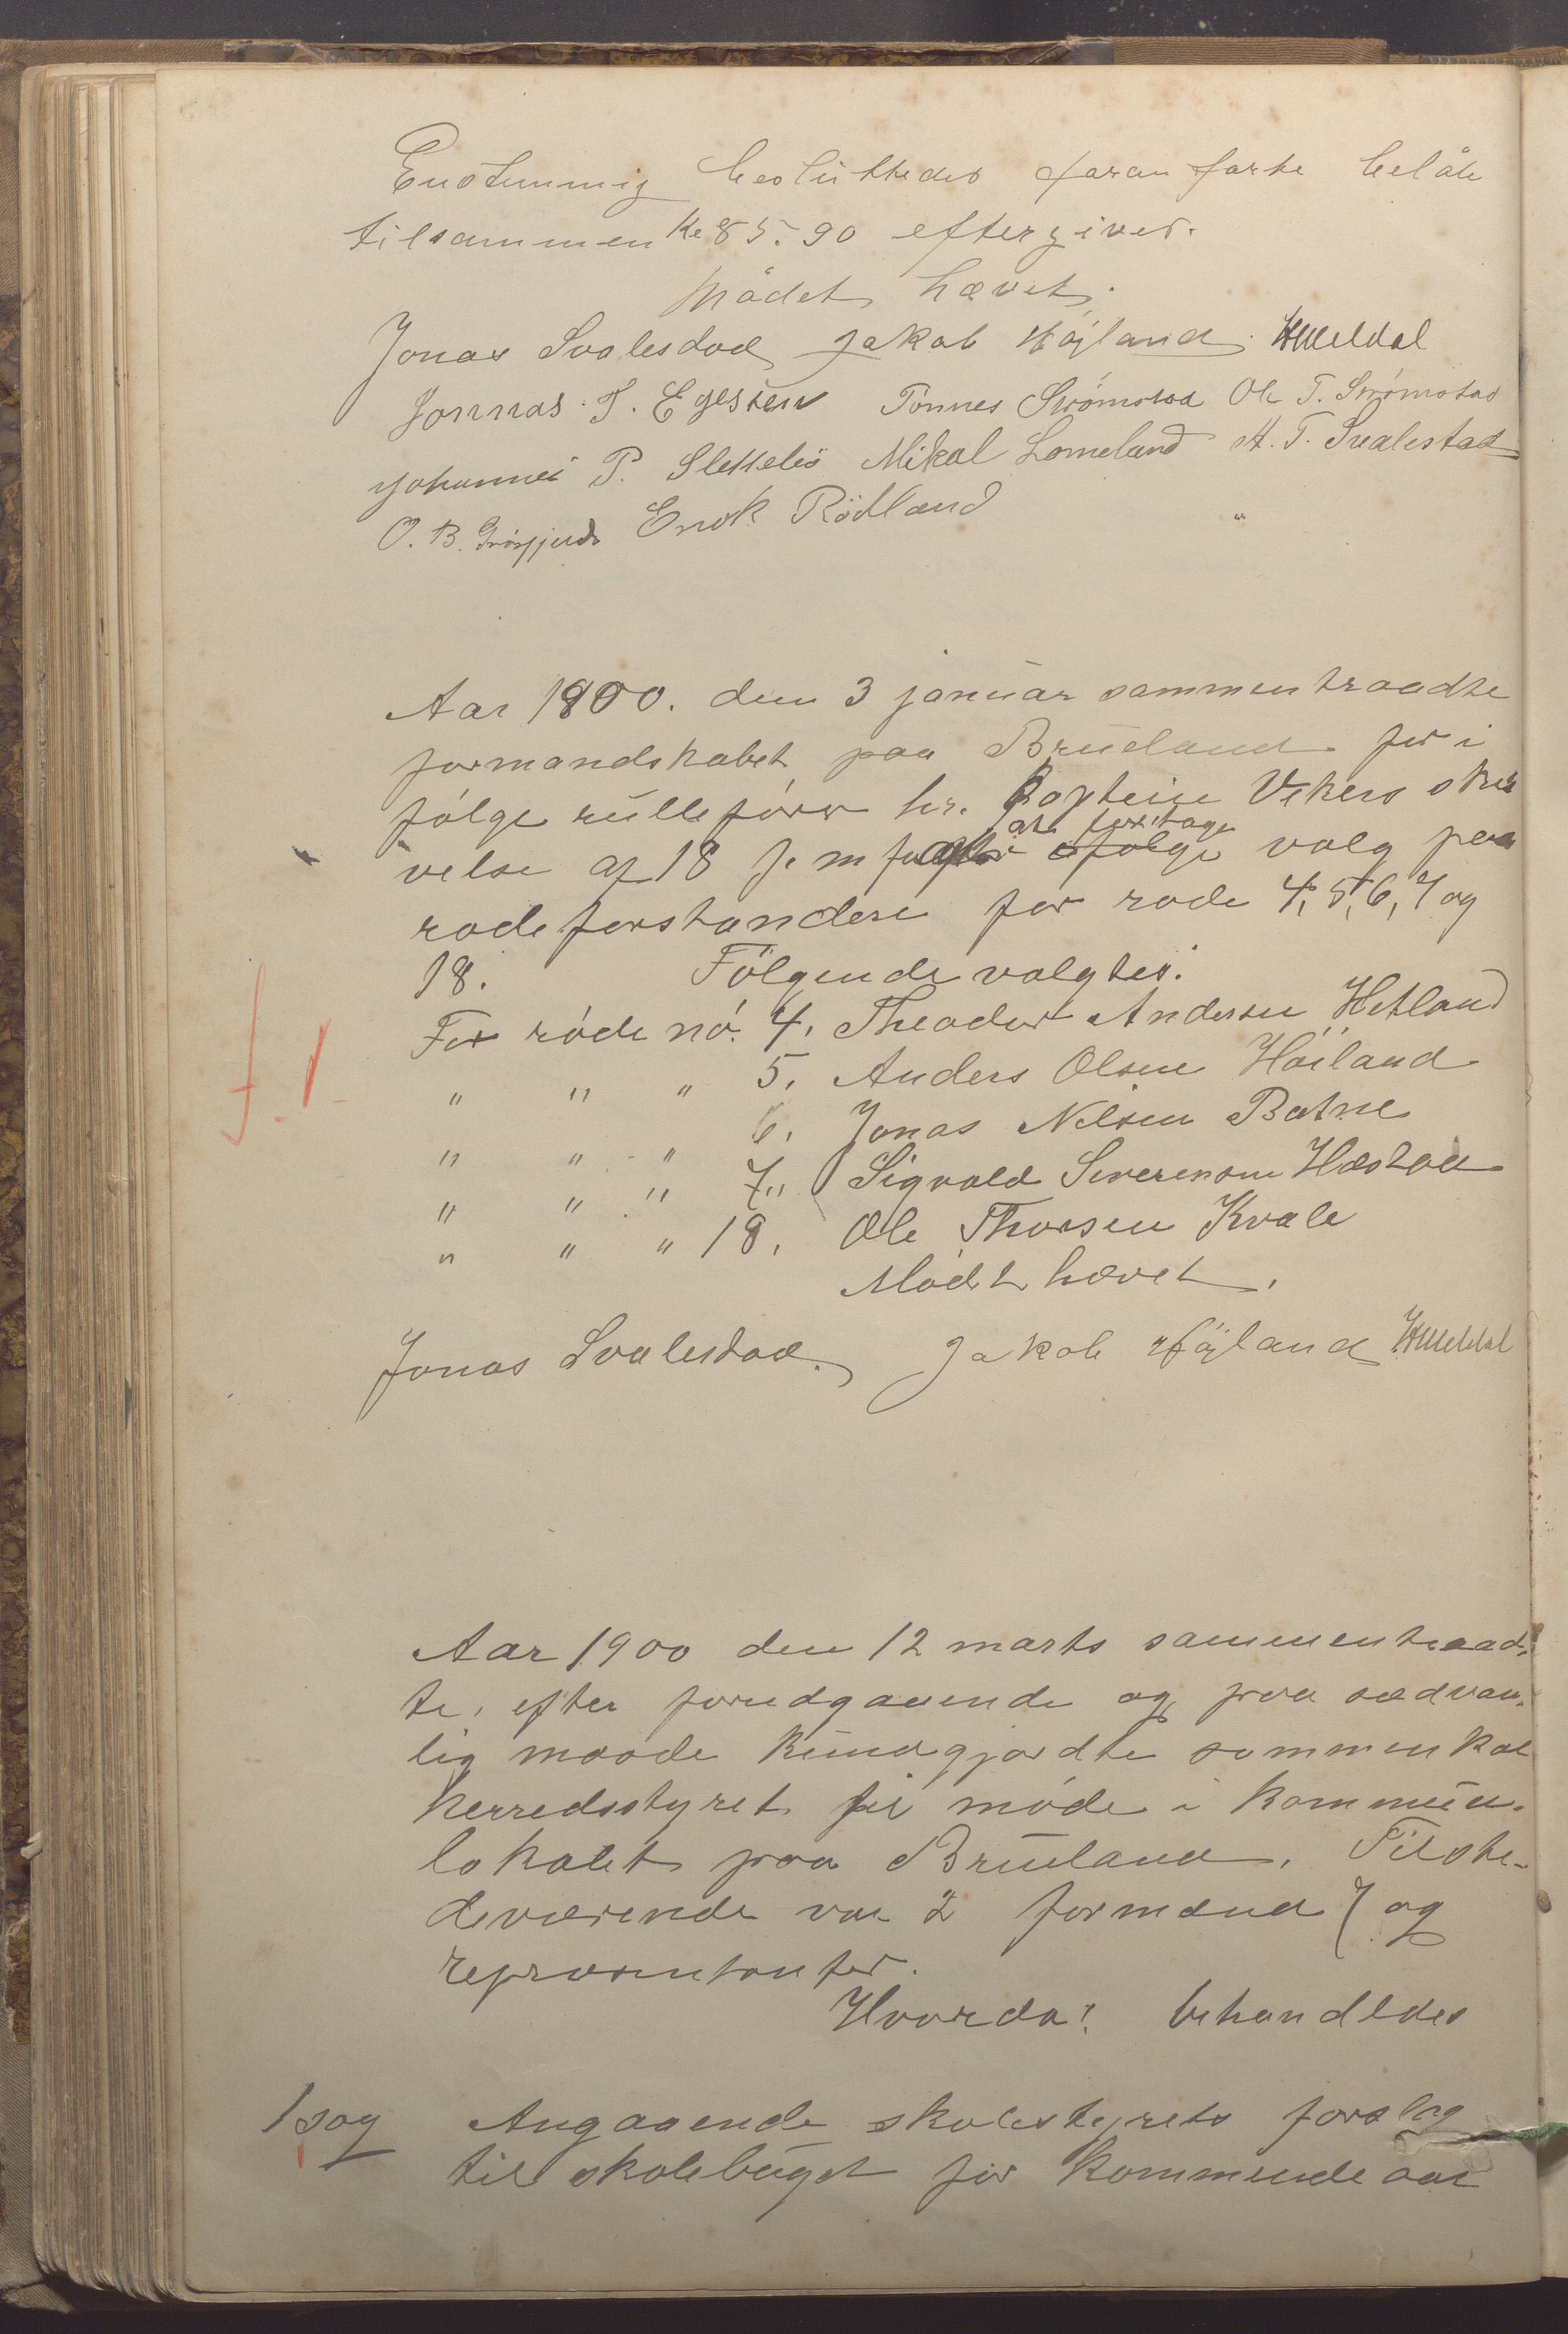 Enstemmig besluttedes foranførte beløb
tilsammen Kr 85.90 eftergivet.
Mödet hævet.
Jonas Svalestad Jakob Höjland. HMeldal
Jonnas. T. Egesten Tönnes Strømstad Ole T. Strømstad
Johannes P. Sletteliö Mikal Lomeland A. T. Svalestad
O. B. Enok Rödland
Aar 1900. den 3 januar sammentraadte
formandskabet paa Brueland for i
følge rulleförer hr. Kapteine Vikers skri
velse af 18 f. m. at foretage valg paa
rodeforstandere for rode 4, 5, 6, 7 og
18. Fölgende valgtes.
For rode no. 4. Theodor Andersen Hetland
" " " 5. Anders Olsen Höiland
" " " 6. Jonas Nelsen Batne
" " " 7. Sigvald Severensen Hæstad
" " " 18. Ole Thorsen Kvale
Mödet hævet.
Jonas Svalestad. Jakob Höjland HMeldal
f. 1.
Aar 1900 den 12 marts sammentraad-
te, efter forudgaaende og paa sædvan-
lig maade kundgjordte sammenkal
herredsstyret til møde i kommun-
lokalet paa Brueland. Tilste-
deværende var 2 formænd 7 og
repræsentanter.
Hvorda: behandledes
1 sag Angaaende skolestyrets forslag
til skolebuget for kommende aar